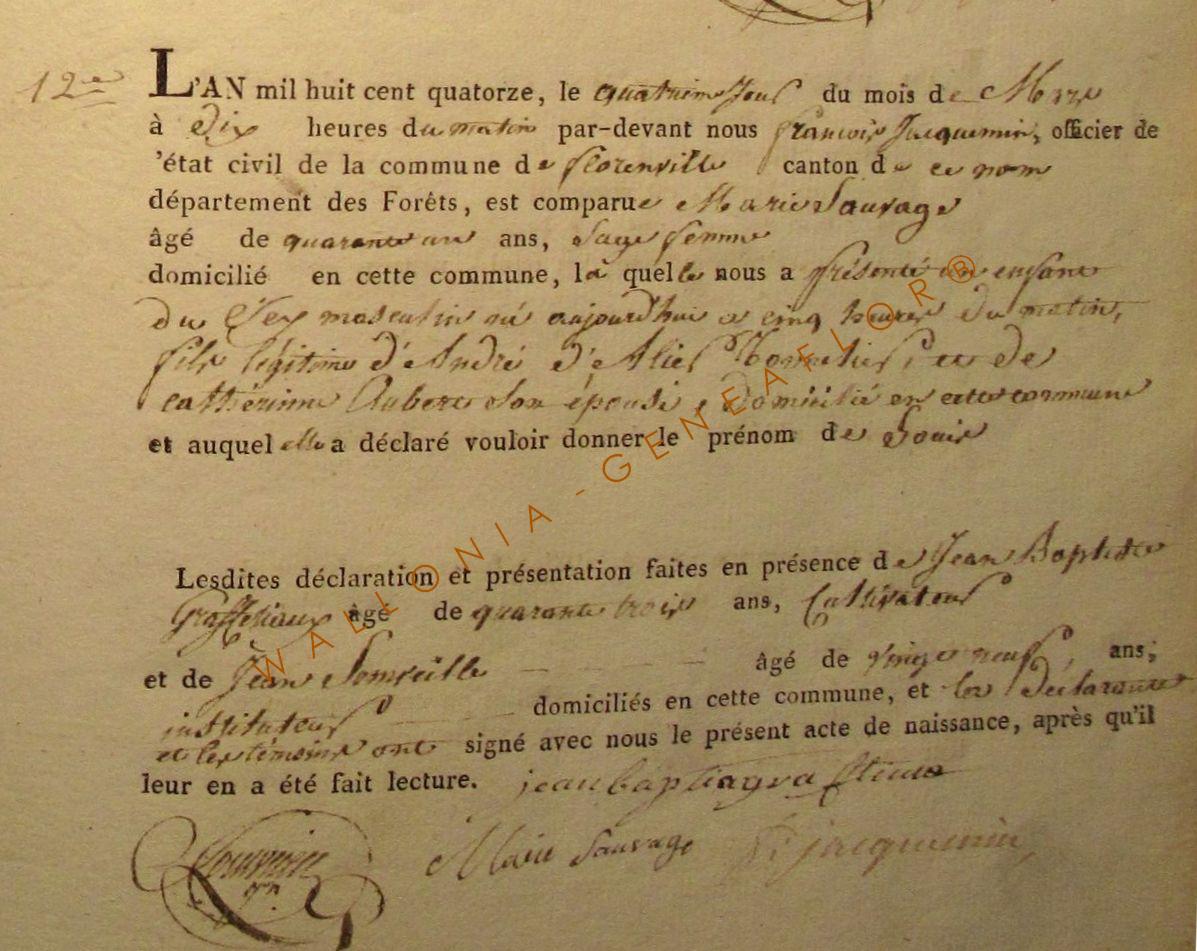 12e
L'AN mil huit cent quatorze, le quatrieme Jour du mois de Mars
à Dix heures du matin par-devant nous francois Jacquemin, officier de
'état civil de la commune de florenville canton de ce nom
département des Forêts, est comparue Marie Sauvage
âgé de quarante un ans, Sage femme
domicilié en cette commune, la quelle nous a présenté un enfant
du Sex masculin né aujourd'hui a cinq heures du matin,
fils légitime d'André d'Alief et de
cathérinne Aubert son épouse, Domicilié en cette commune
et auquel elle a déclaré vouloir donner le prénom de Louis
Lesdites déclaration et présentation faites en présence de Jean Baptiste
âgé de quarante trois ans, Cultivateur
et de Jean âgé de vingt neuf, ans;
instituteur domiciliés en cette commune, et la declarante
et les témoins ont signé avec nous le présent acte de naissance, après qu'il
leur en a été fait lecture.
Marie Sauvage F jacquemin
WALLONIA-GENEAFLOR®